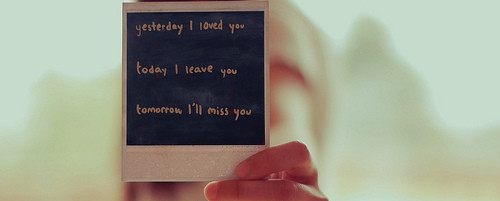 yesterday I loved you
today I leave you
tomorrow I'll miss you